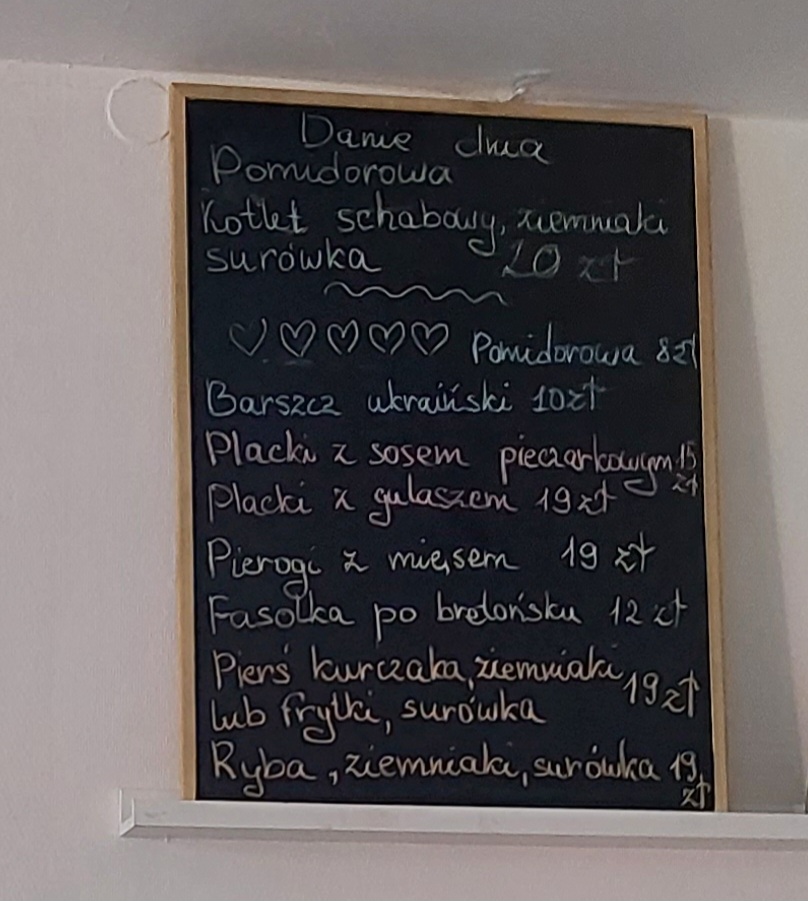 Danie dnia
Pomidorowa
Kotlet schabowy, ziemniaki
surówka 20 zł
Pomidorowa 8zł
Barszcz ukraiński 10zł
Placki z sosem pieczarkowym 15 zł
Placki z gulaszem 19 zł
Pierogi z mięsem 19 zł
Fasolka po bretońsku 12 zł
Pierś kurczaka, ziemniaki 19 zł
lub frytki, surówka
Ryba, ziemniaki, surówka 19, zł